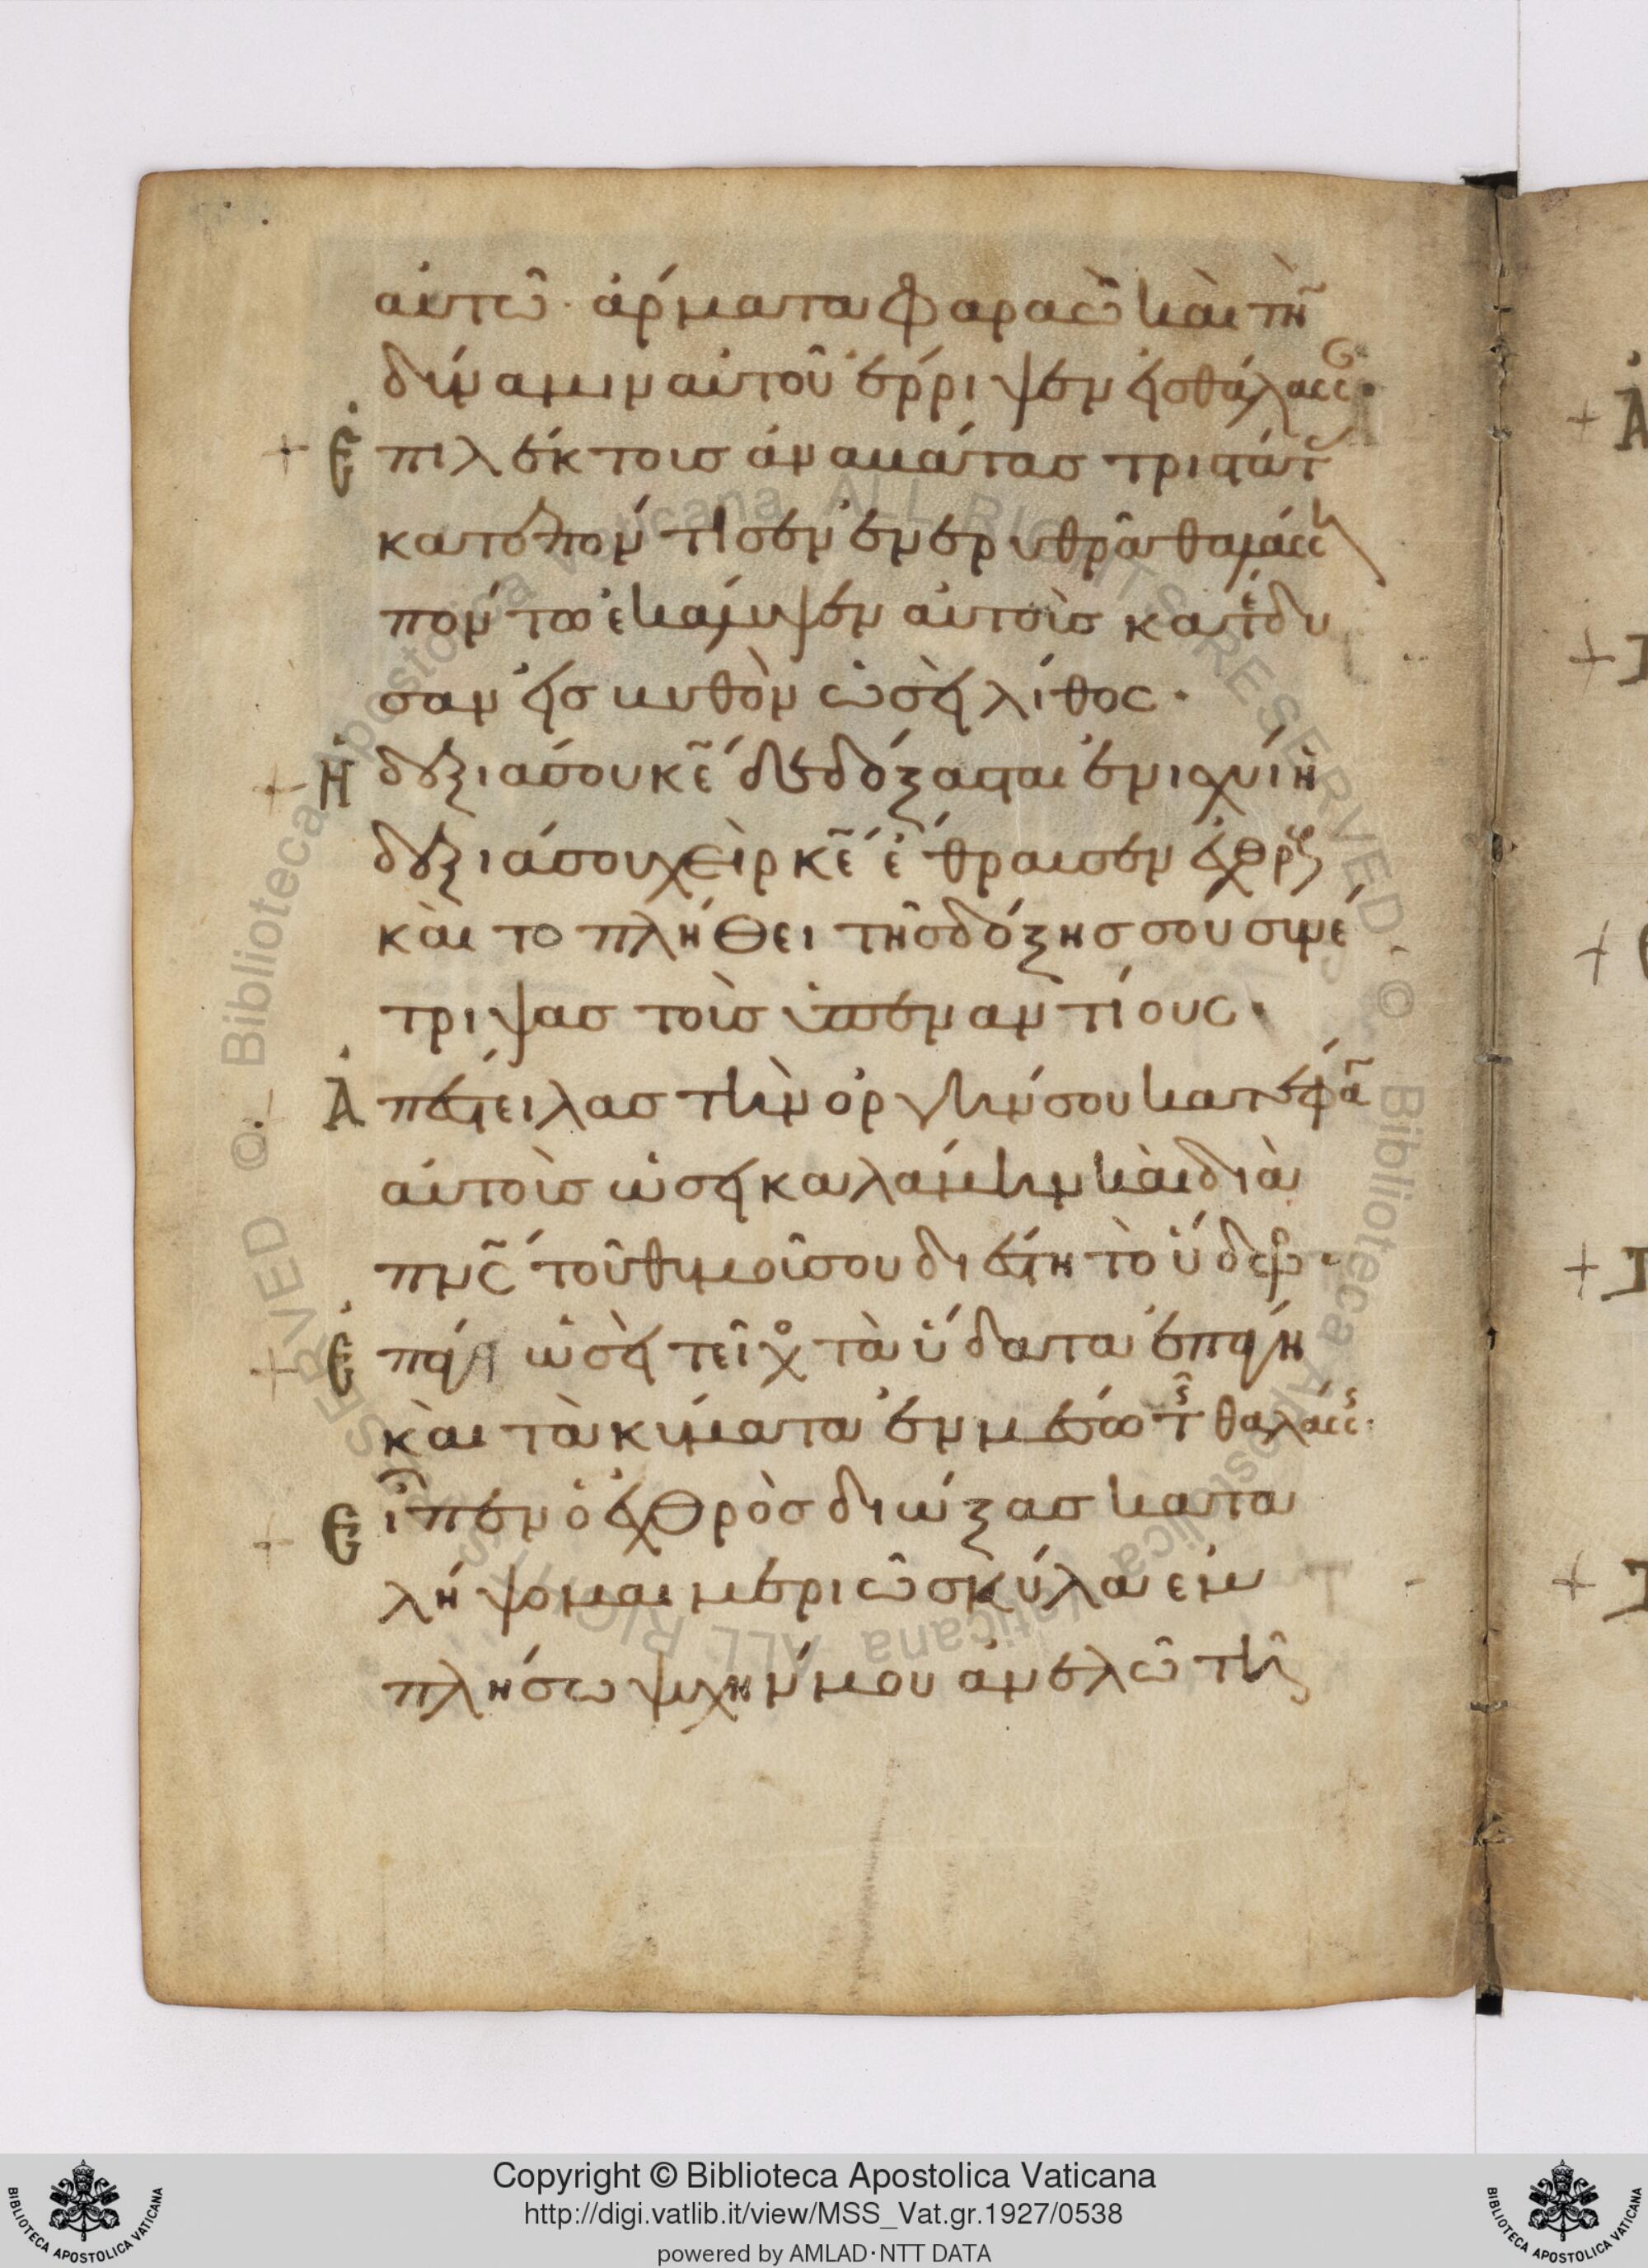 αὐτῶ· ἅρματα Φαραὼ καὶ τὴ̃
δύναμιν αὐτοῦ ἔρριψεν εἰς θάλασσ·
+ Ἐπιλέκτοις ἀναβάτας τριστάτ
κατεπόντισεν ἐν ἐρυθρᾶ θαλάσσῃ
πόντω ἐκάλυψεν αὐτοὺς κατέδυ
σαν εἰς βυθὸν ὡσεὶ λίθος·
+ Ἡ δεξιά σου κε̃ δεδόξασται ἐν ισχύι ἡ
δεξιά σου χεὶρ κε̃ ἔθραυσεν ἐχθρούς
καὶ το πλήθει τῆς δόξης σου συνέ
τριψας τοὺς ὑπεναντίους·
Ἀπέστειλας τὴν ὀργήν σου κατέφαˉ
αὐτοὺς ὡσεὶ καλάμην καὶ διὰ
πνς̃ τοῦ θυμοῦ σου διέστη τὸ ὕδωρ·
+ Ἐπάγη ὡσεὶ τεῖχο τὰ ὕδατα ἐπάγη
καὶ τὰ κύματα ἐν μέσω τῆς θαλάσσης·
+ Εἶπεν ὁ ἐχθρὸς διώξας κατα
λήψομαι μεριῶ σκύλα ἐμ
πλήσω ψυχήν μου ἀνελῶ τῆ
Copyright © Biblioteca Apostolica Vaticana
http://digi.vatlib.it/view/MSS_Vat.gr.1927/0538
powered by AMLAD·NTT DATA